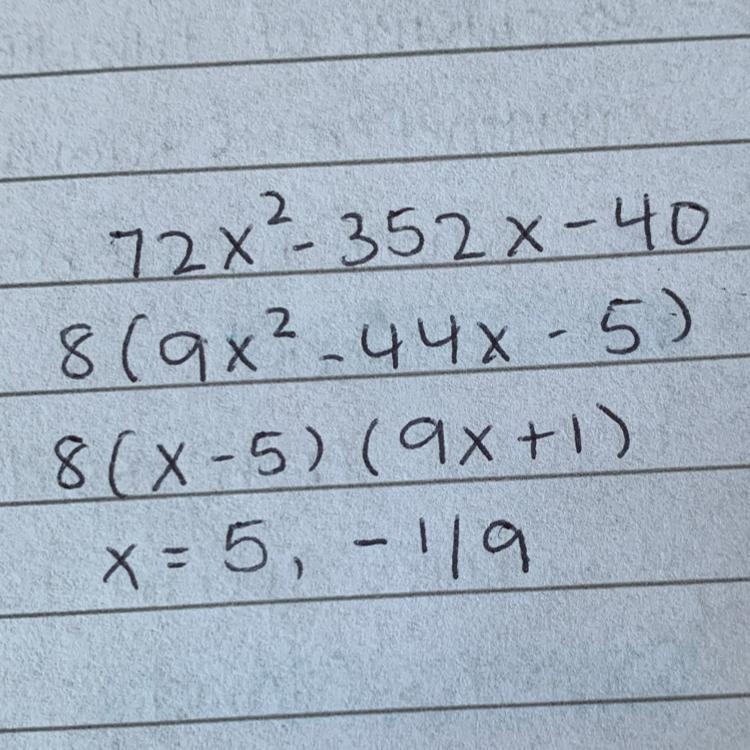 72x² - 352x - 40
8(9x² - 44x - 5)
8(x - 5)(9x + 1)
x = 5, -1/9